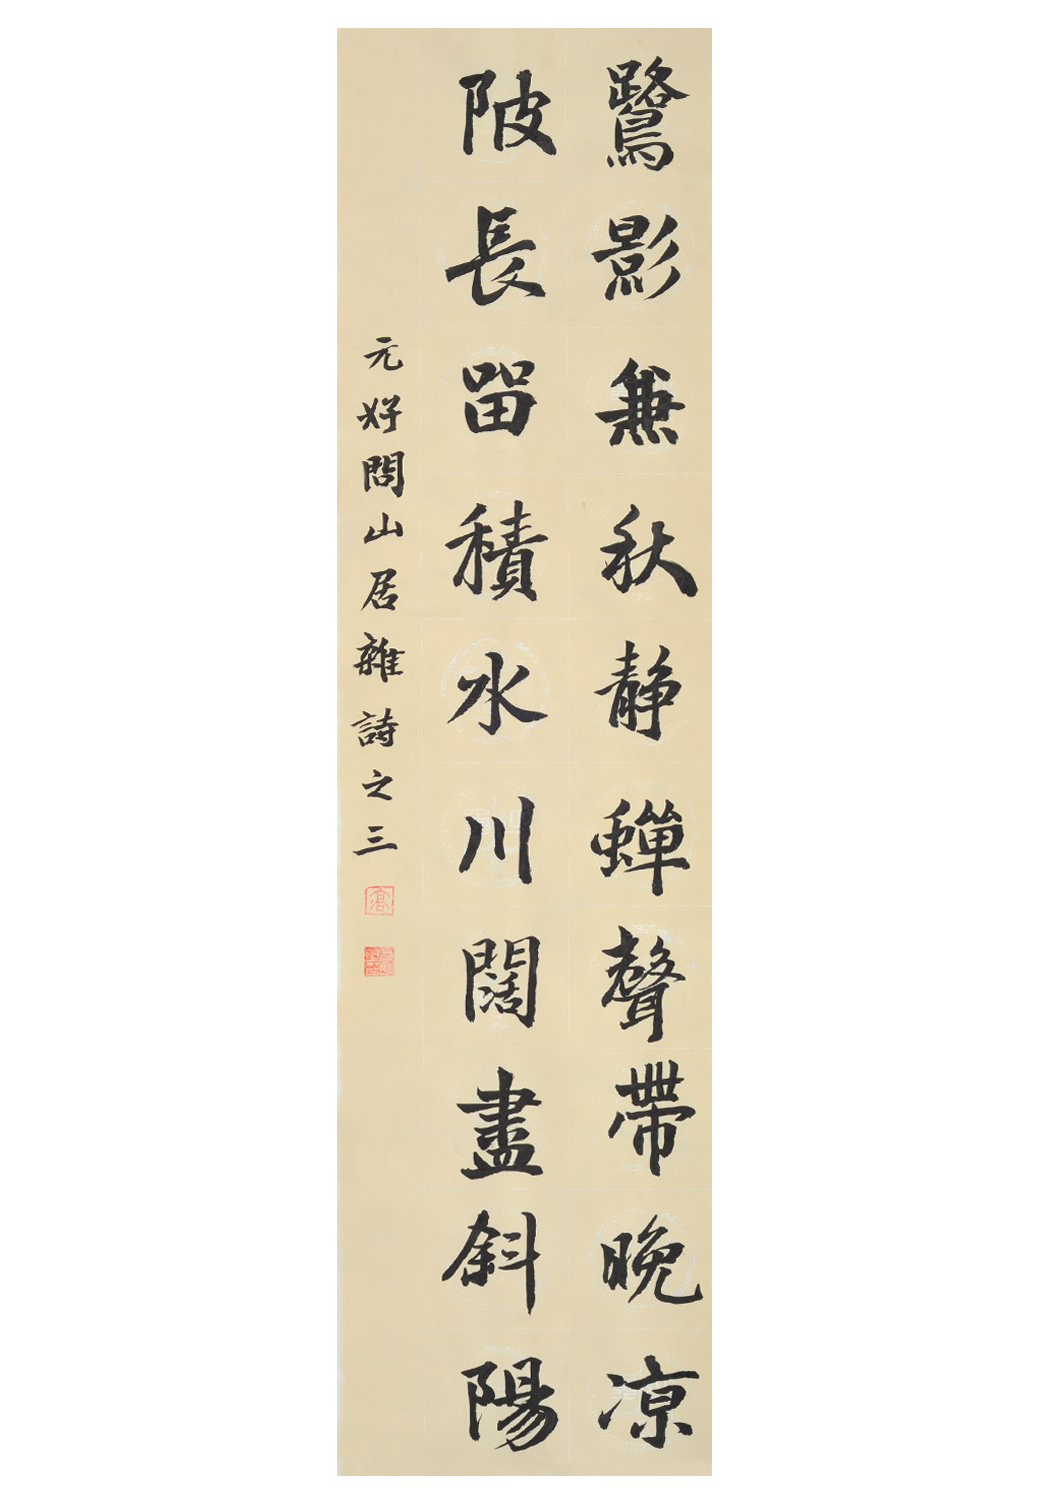 鷺影兼秋静蟬聲帶晚凉
陂長留積水川闊盡斜陽
元好問山居雜詩之三